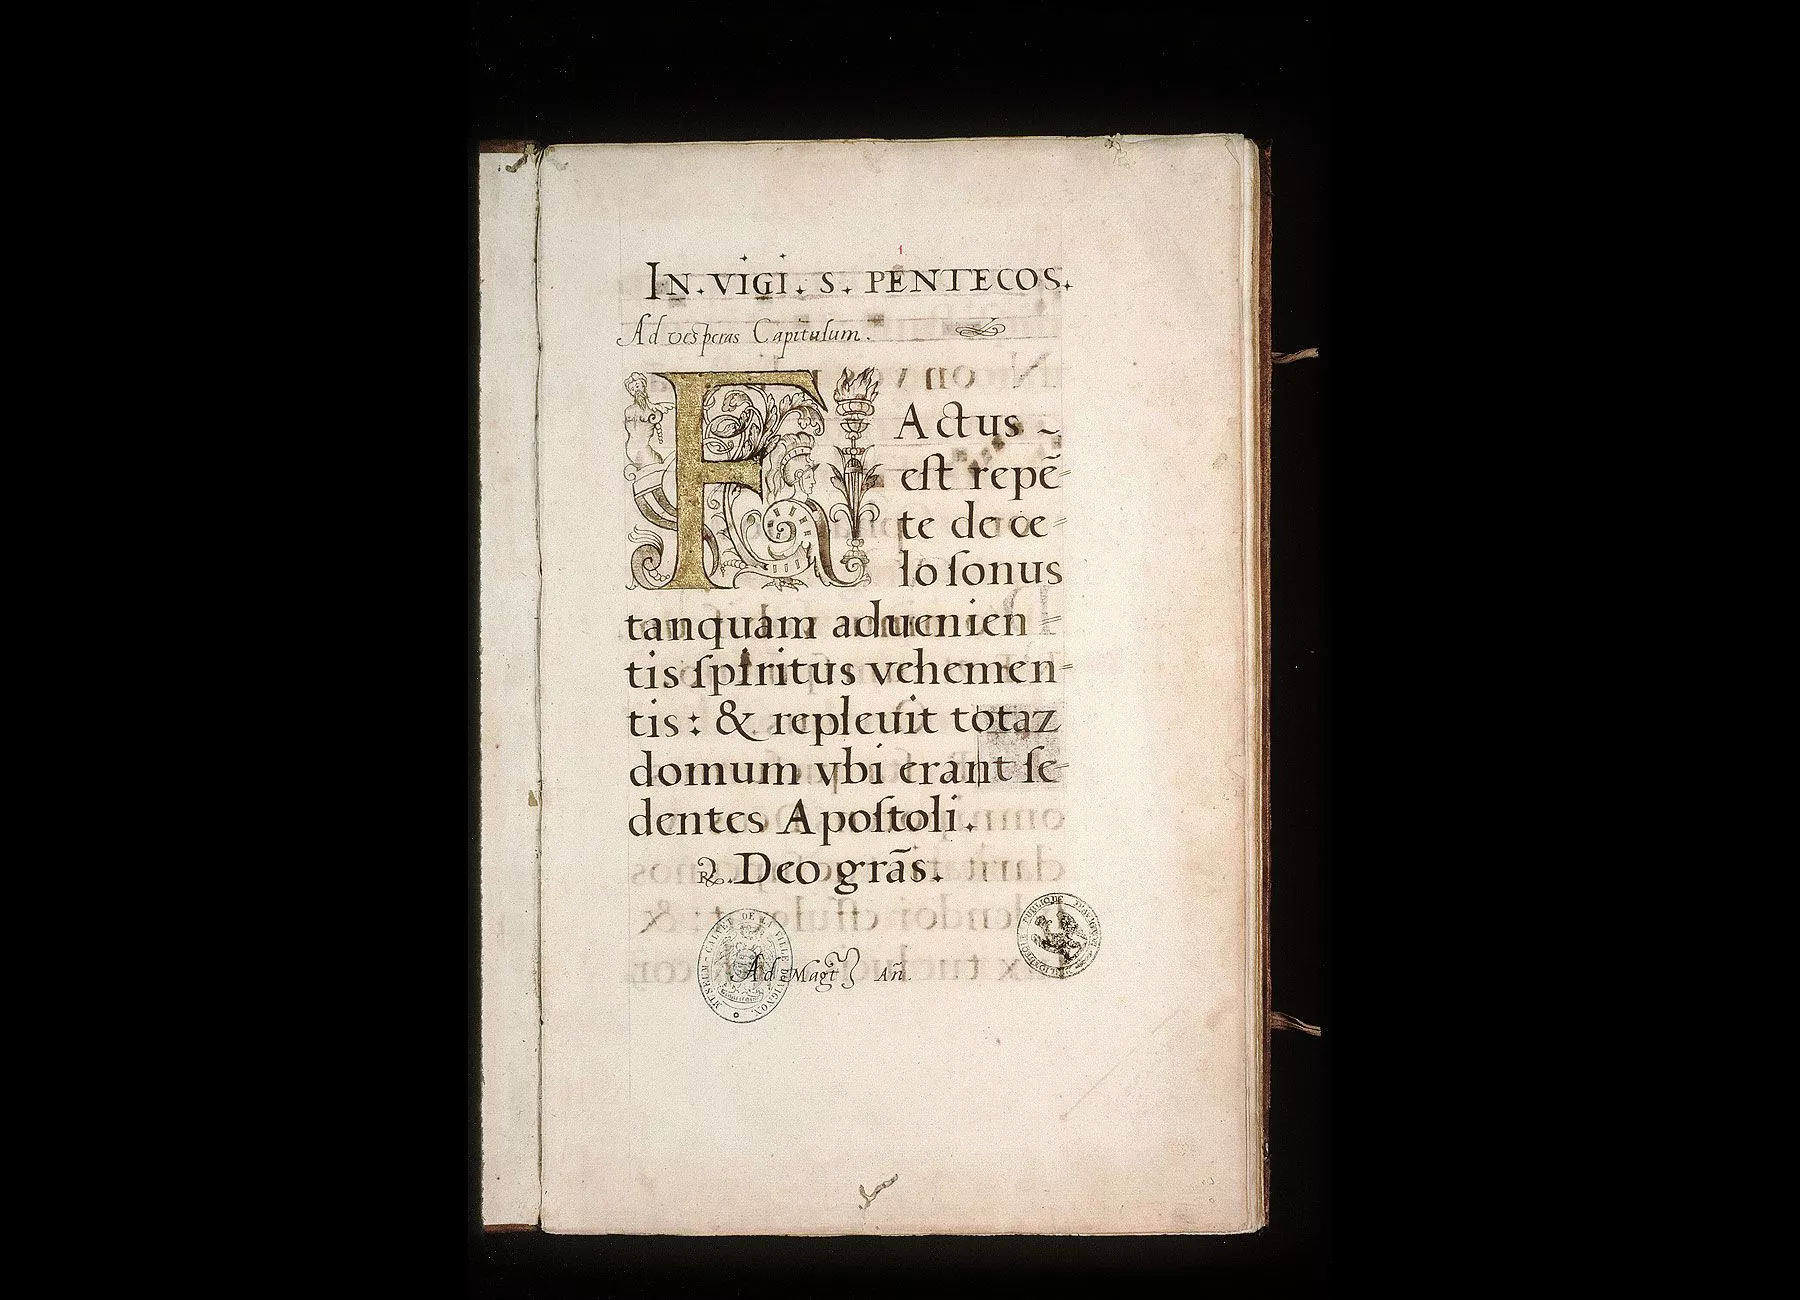 1
IN. VIGI. S. PENTECOS.
Ad vesperas Capitulum.
FActus ~
eſt repẽ-
te de ce-
lo ſonus
tanquam aduenien-
tis ſpiritus vehemen-
tis: & repleuit totaz
domum vbi erant ſe-
dentes Apoſtoli.
℟. Deo grãs.
MUSEUM-CALVET DE LA VILLE D'AVIGNON.
Ad Magt Añ.